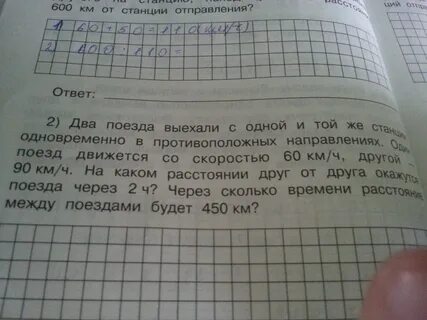 на станцию,
600 км от станции отправления?
1) 60+50=110(км/ч)
2)
Ответ:
2) Два поезда выехали с одной и той же
одновременно в противоположных направлениях.
поезд движется со скоростью 60 км/ч, другой –
90 км/ч. На каком расстоянии друг от друга окажутся
поезда через 2 ч? Через сколько времени
между поездами будет 450 км?